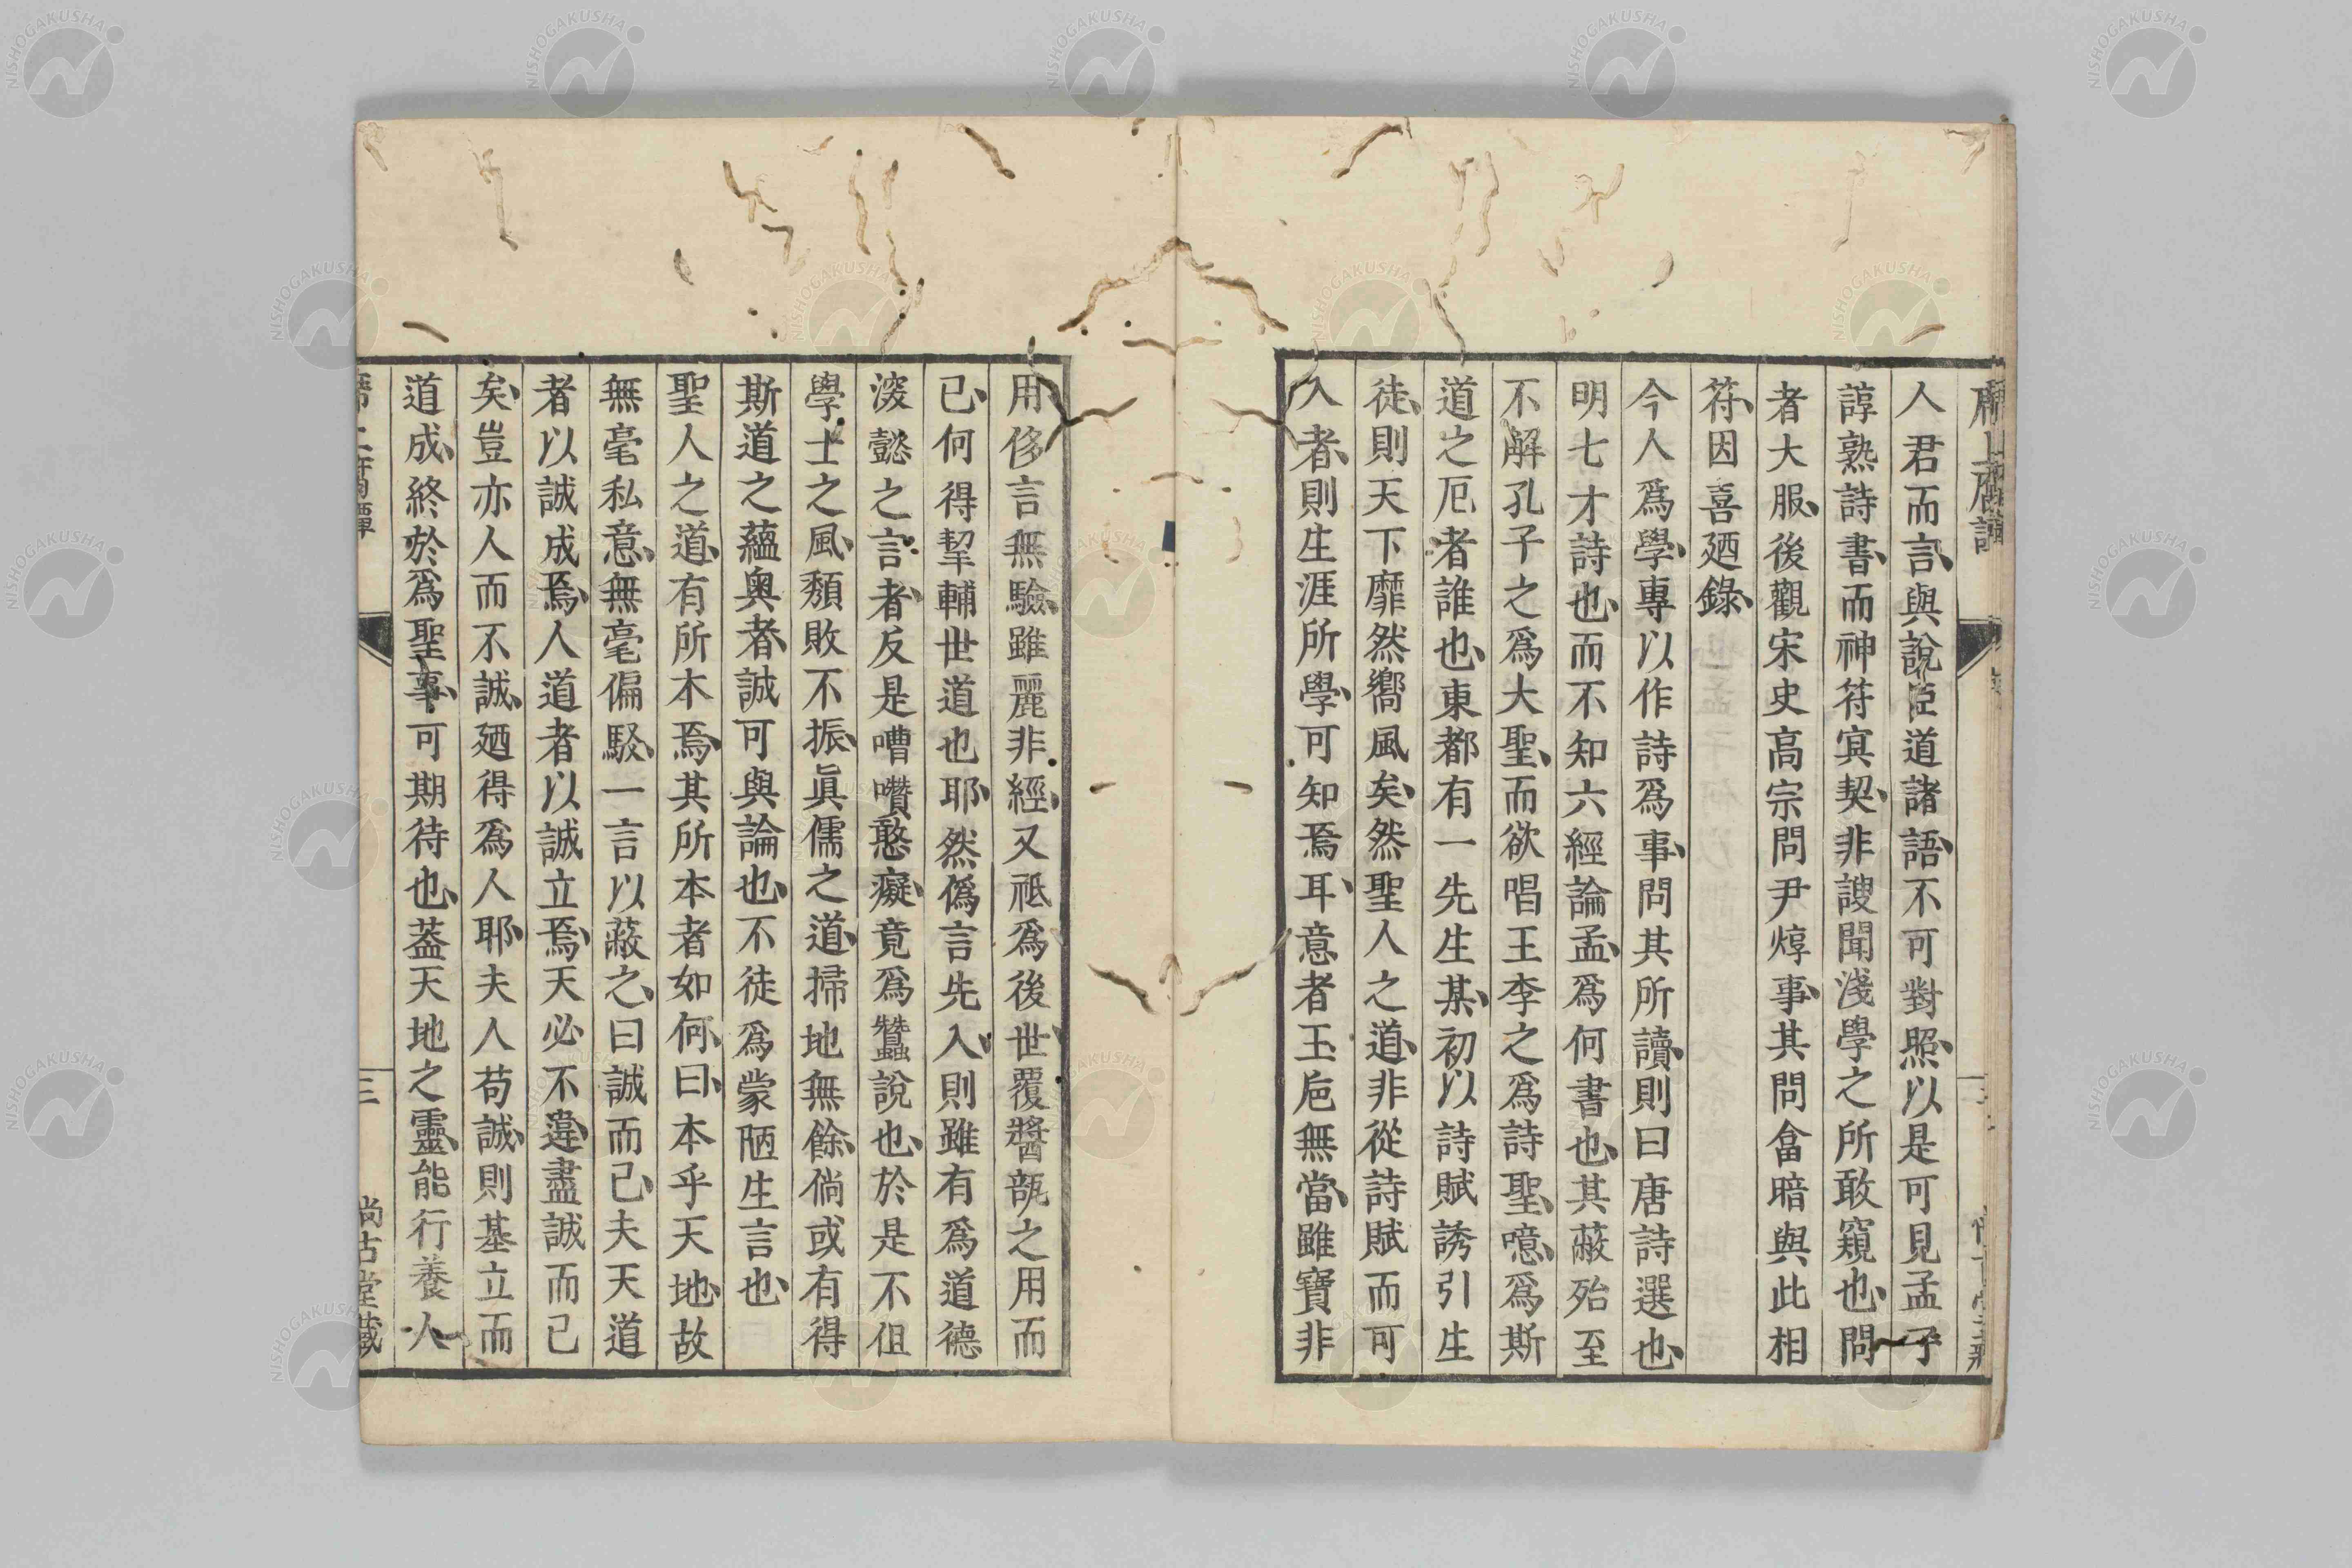 人君而言、與說臣道諸語、不可對照、以是可見孟子
諄熟詩書、而神符㝠契、非謏聞淺學之所敢窺也、問
者大服、後觀宋史高宗問尹焞事、其問畣暗與此相
符、因喜廼錄、
今人爲學、專以作詩爲事、問其所讀、則曰唐詩選也、
明七才詩也、而不知六經論孟、爲何書也、其蔽殆至
不解孔子之爲大聖、而欲唱王李之爲詩聖、噫、爲斯
道之厄者誰也、東都有一先生某、初以詩賦誘引生
徒、則天下靡然嚮風矣、然聖人之道、非從詩賦而可
入者、則生涯所學、可知焉耳、意者玉巵無當、雖寶非
用侈言無驗、雖麗非經、又祗爲後世、覆醬瓿之用而
已、何得挈輔世道也耶、然僞言先入、則雖有爲道德
淡懿之言者、反是嘈囋憨癡、竟爲蠶說也、於是不但
學士之風、頹敗不振、眞儒之道、掃地無餘、倘或有得
斯道之蘊奧者、誠可與論也、不徒爲蒙陋生言也、
聖人之道、有所本焉、其所本者如何、曰、本乎天地、故
無毫私意、無毫偏駁、一言以蔽之、曰誠而已、夫天道
者以誠成焉、人道者以誠立焉、天必不違盡誠而已
矣、豈亦人而不誠、廼得爲人耶、夫人苟誠、則基立而
道成、終於爲聖事、可期待也、葢天地之靈、能行養人
三
尚古堂藏
NISHOGAKUSHA